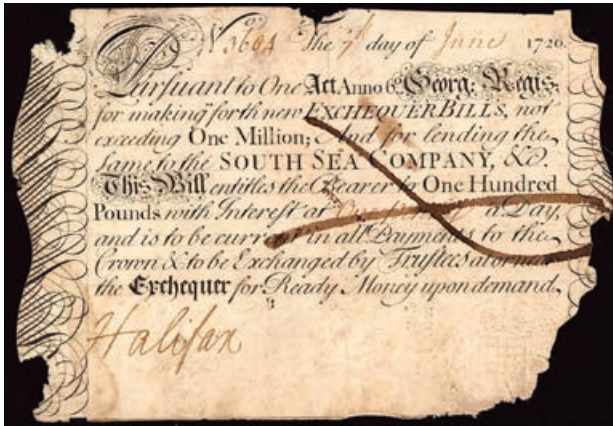 No. 3694 The 7th day of June 1720.
Pursuant to One Act Anno 6o. Georg: Regis:
for making forth new EXCHEQUER BILLS, not
exceeding One Million; And for lending the
Same to the SOUTH SEA COMPANY, &c.
This Bill entitles the Bearer to One Hundred
Pounds with Interest at a Day,
and is to be current in all Payments to the
Crown & to be Exchanged by Trustees at or near
the Exchequer for Ready Money upon demand,
Halifax